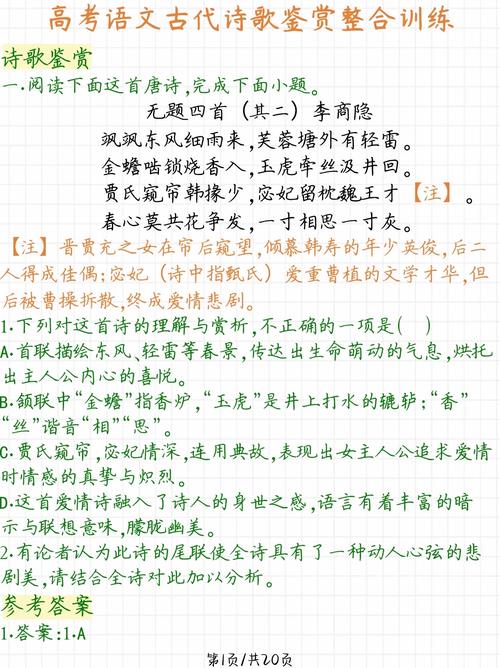 高考语文古代诗歌鉴赏整合训练
诗歌鉴赏
一.阅读下面这首唐诗,完成下面小题。
无题四首（其二）李商隐
飒飒东风细雨来,芙蓉塘外有轻雷。
金蟾啮锁烧香入,玉虎牵丝汲井回。
贾氏窥帘韩掾少,宓妃留枕魏王才【注】。
春心莫共花争发,一寸相思一寸灰。
【注】晋贾充之女在帘后窥望,倾慕韩寿的年少英俊,后二
人得成佳偶;宓妃（诗中指甄氏）爱重曹植的文学才华,但
后被曹操拆散,终成爱情悲剧。
1.下列对这首诗的理解与赏析,不正确的一项是( )
A.首联描绘东风、轻雷等春景,传达出生命萌动的气息,烘托
出主人公内心的喜悦。
B.颔联中“金蟾”指香炉,“玉虎”是井上打水的辘轳;“香”
“丝”谐音“相”“思”。
C.贾氏窥帘,宓妃情深,连用典故,表现出女主人公追求爱情
时情感的真挚与炽烈。
D.这首爱情诗融入了诗人的身世之感,语言有着丰富的暗
示与联想意味,朦胧幽美。
2.有论者认为此诗的尾联使全诗具有了一种动人心弦的悲
剧美,请结合全诗对此加以分析。
参考答案
1.答案:1.A
第1页/共20页